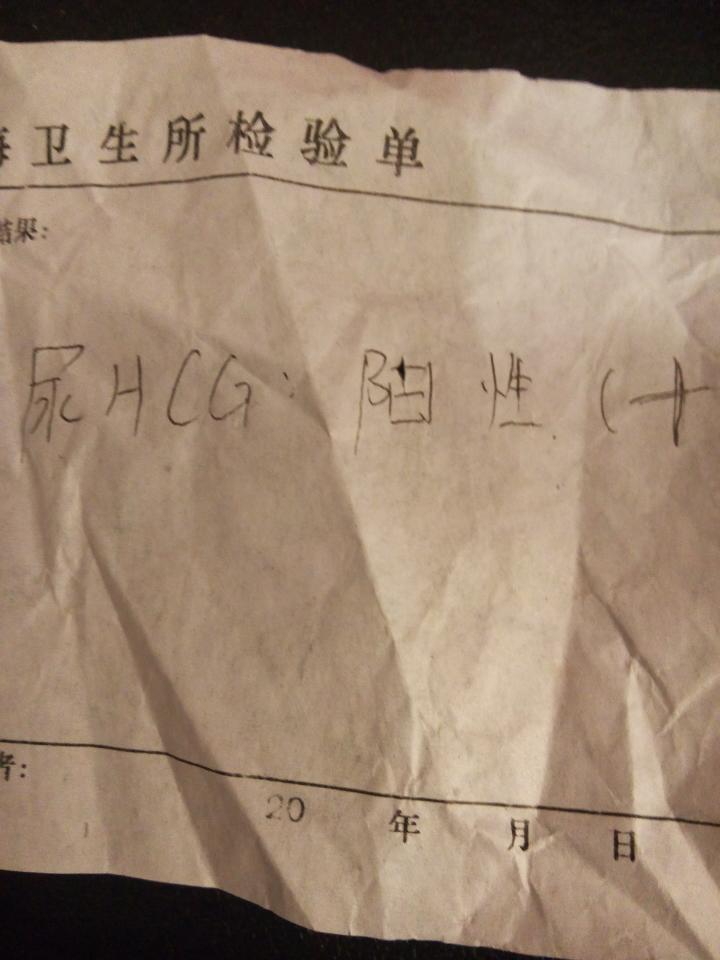 卫生所检验单
结果:
尿HCG: 阳性 (+
者:
20 年 月 日